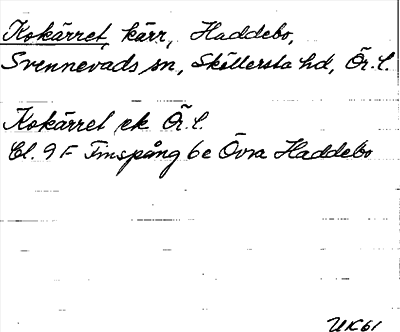 Kokärret, kärr, Haddebo,
Svennevads sn, Sköllersta hd, Ör. l.
Kokärret ek Ör. l.
Bl. 9 F Finspång 6e Övra Haddebo
UK61